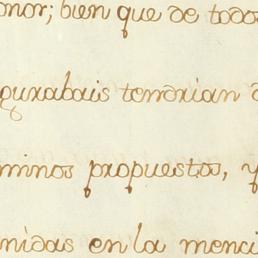 onor; bien que de todos
gurabais tendrian
minos propuestos, y
nidas en la menci